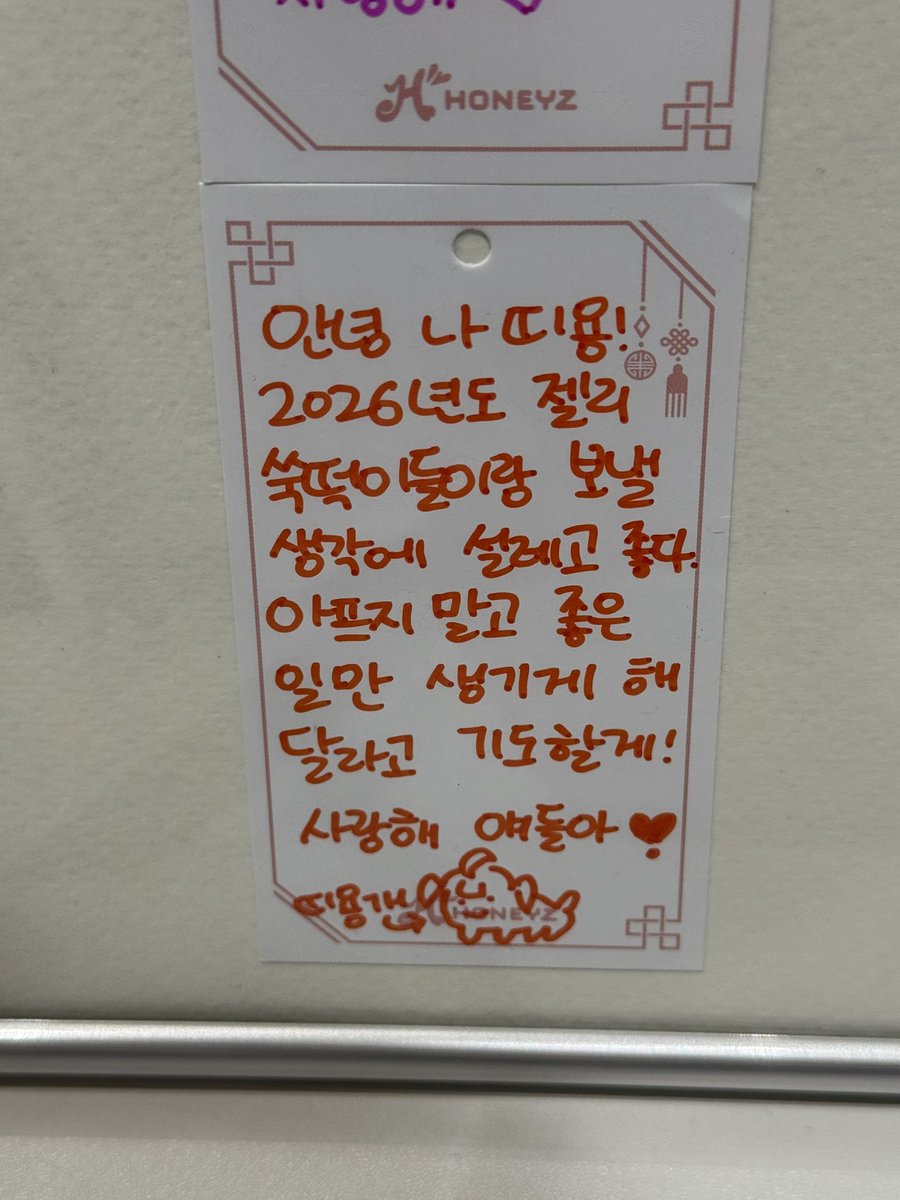 사랑해
HONEYZ
안녕 나 띠용!
2026년도 젤리
쑥떡이들이랑 보낼
생각에 설레고 좋다.
아프지 말고 좋은
일만 생기게 해
달라고 기도할게!
사랑해 얘들아
띠용개
HONEYZ